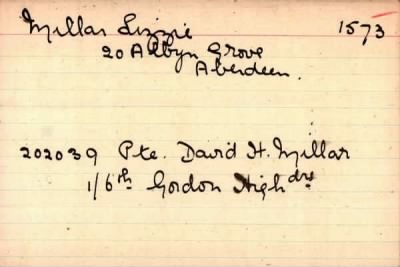 Millar Lizzie 1573
20 Albyn Grove
Aberdeen.
202039 Pte. David H. Millar
1/6th Gordon Highdrs